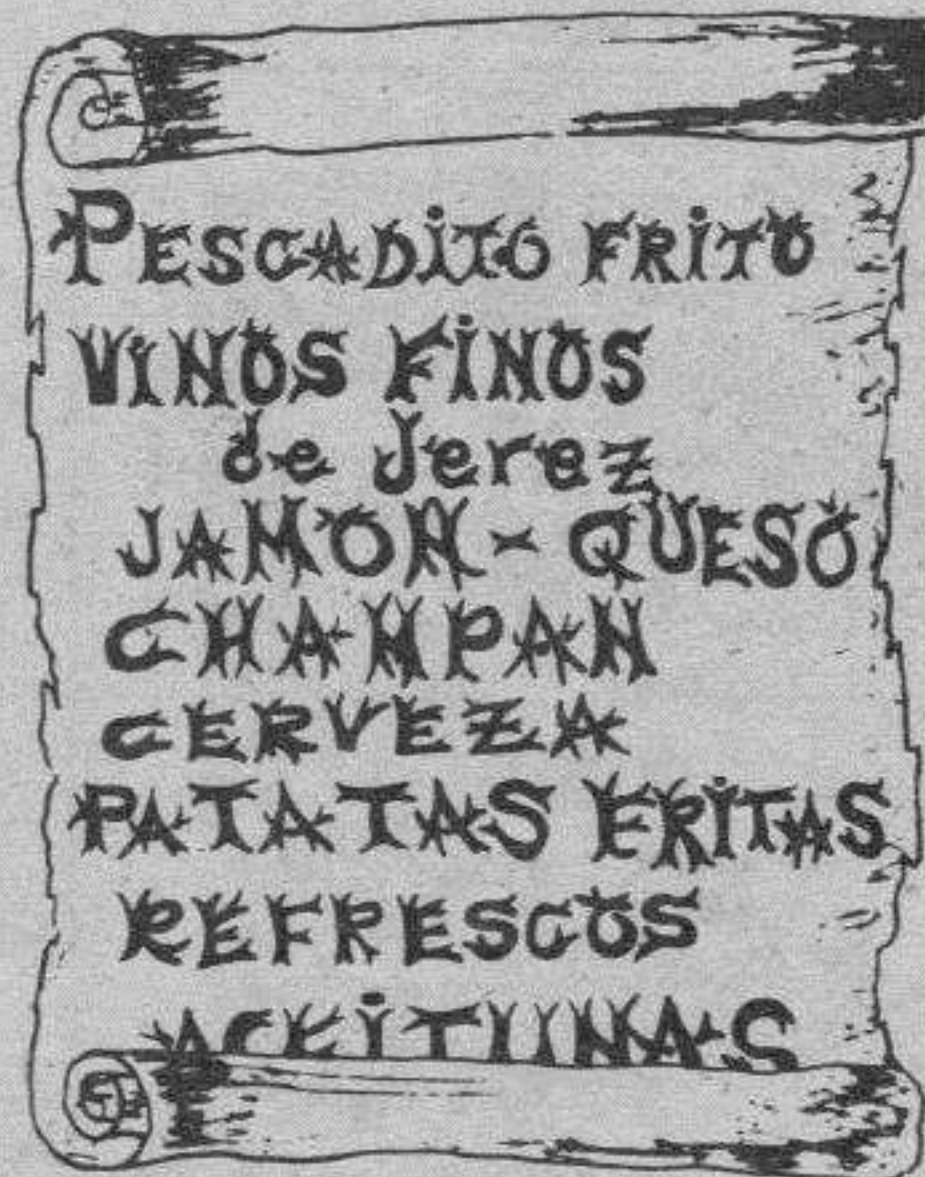 PESCADITO FRITO
VINOS FINOS
de Jerez
JAMON - QUESO
CHANPAN
CERVEZA
PATATAS FRITAS
REFRESCOS
ACEITUNAS